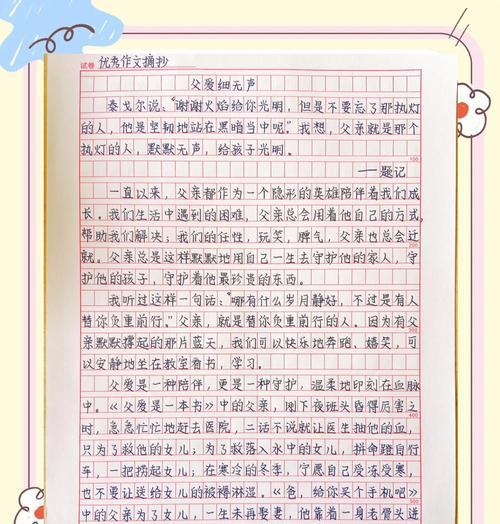 试卷 优秀作文摘抄
父爱细无声
泰戈尔说:“谢谢火焰给你光明,但是不要忘了那执灯
的人,他是坚韧地站在黑暗当中呢”。我想,父亲就是那个
执灯的人,默默无声,给孩子光明。
——题记
100
一直以来,父亲都作为一个隐形的英雄陪伴着我们成
长。我们生活中遇到的困难,父亲总会用着他自己的方式,
帮助我们解决;我们的任性,玩笑,脾气,父亲也总会迁
就。父亲总是这样默默地用自己一生去守护他的家人,守
200
护他的孩子,守护着他最珍贵的东西。
我听过这样一句话:“哪有什么岁月静好,不过是有人
替你负重前行。”父亲,就是替你负重前行的人。因为有父
亲默默撑起的那片蓝天,我们可以快乐地奔跑、嬉笑,可
300
以安静地坐在教室看书,学习。
父爱是一种陪伴,更是一种守护,温柔地印刻在血脉
中。《父爱是一本书》中的父亲,刚下夜班头昏得厉害之
400
时,急急忙忙地赶去医院,二话不说就让医生抽他的血,
只为了救他的女儿;为了救落入水中的女儿,拼命蹬自行
车,一把捞起女儿;在寒冷的冬季,宁愿自己受冻受寒,
也不要让送给女儿的被褥淋湿。《爸,给你买个手机吧》
500
中的父亲为了女儿,一生未再娶妻,他靠着一身老骨头迸